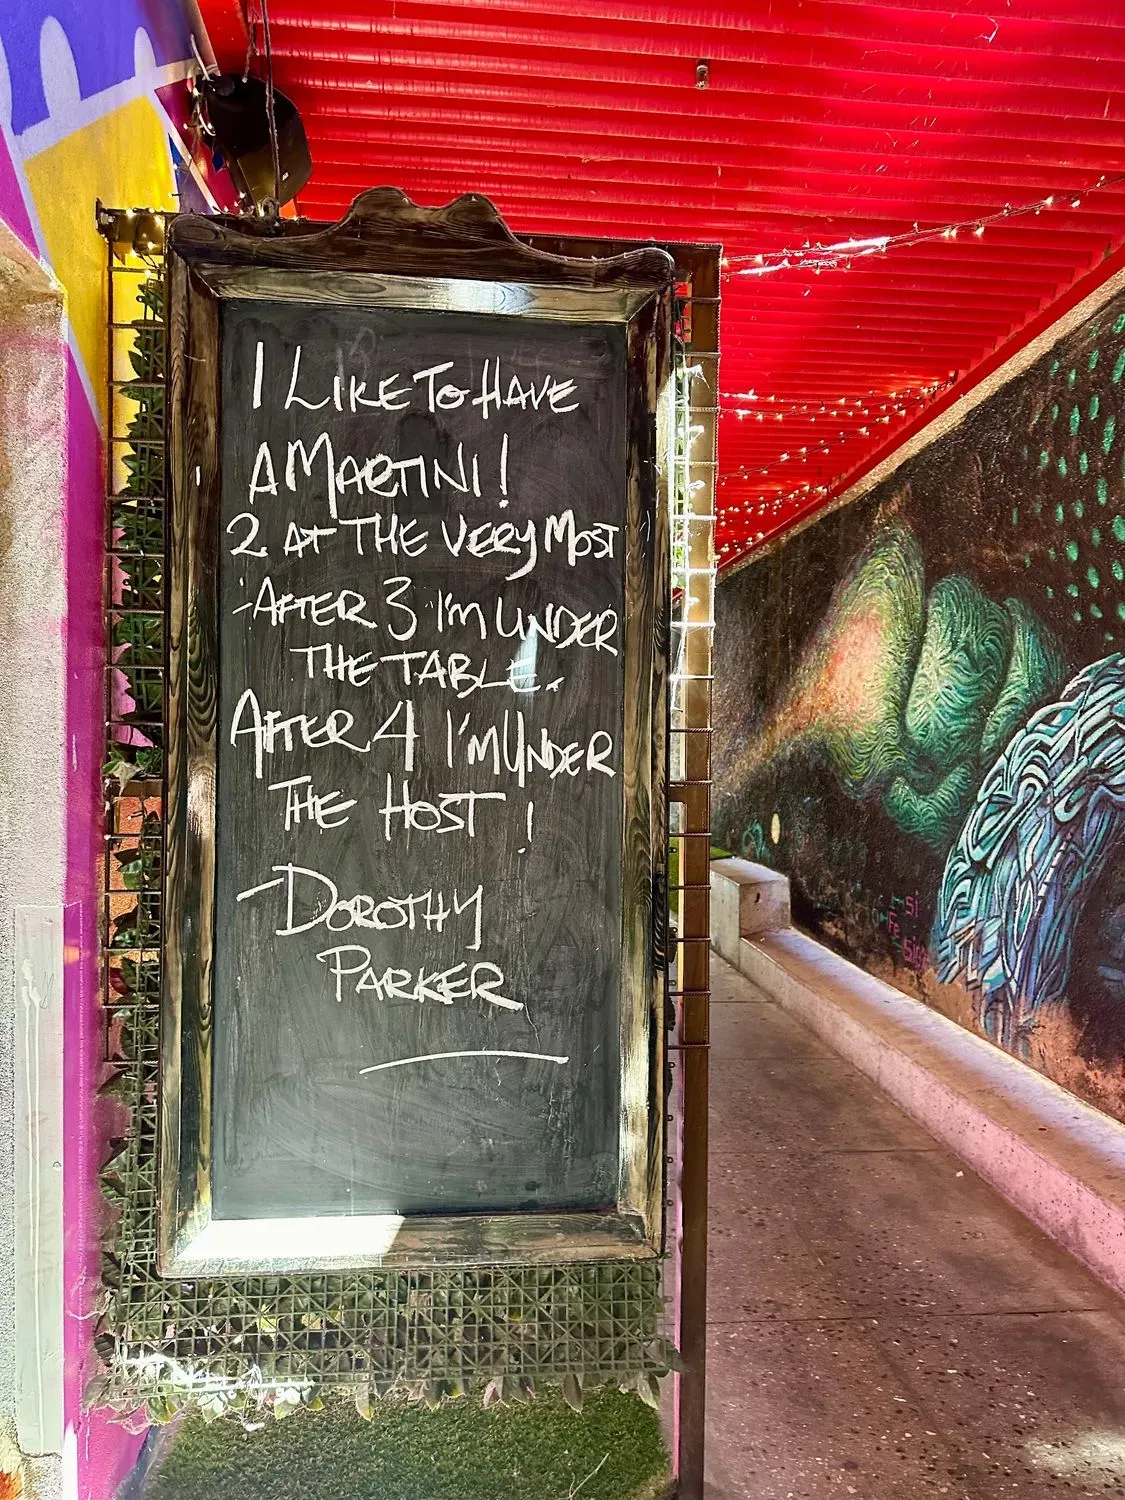 I LIKE TO HAVE
A MARTINI!
2 AT THE VERY MOST
-AFTER 3 I'M UNDER
THE TABLE.
AFTER 4 I'M UNDER
THE HOST !
-DOROTHY
PARKER
Si
Fe